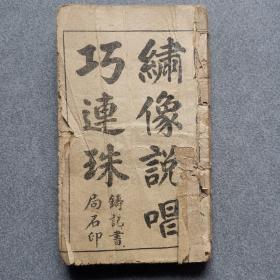 繡像說唱
巧連珠
鑄記書
局石印